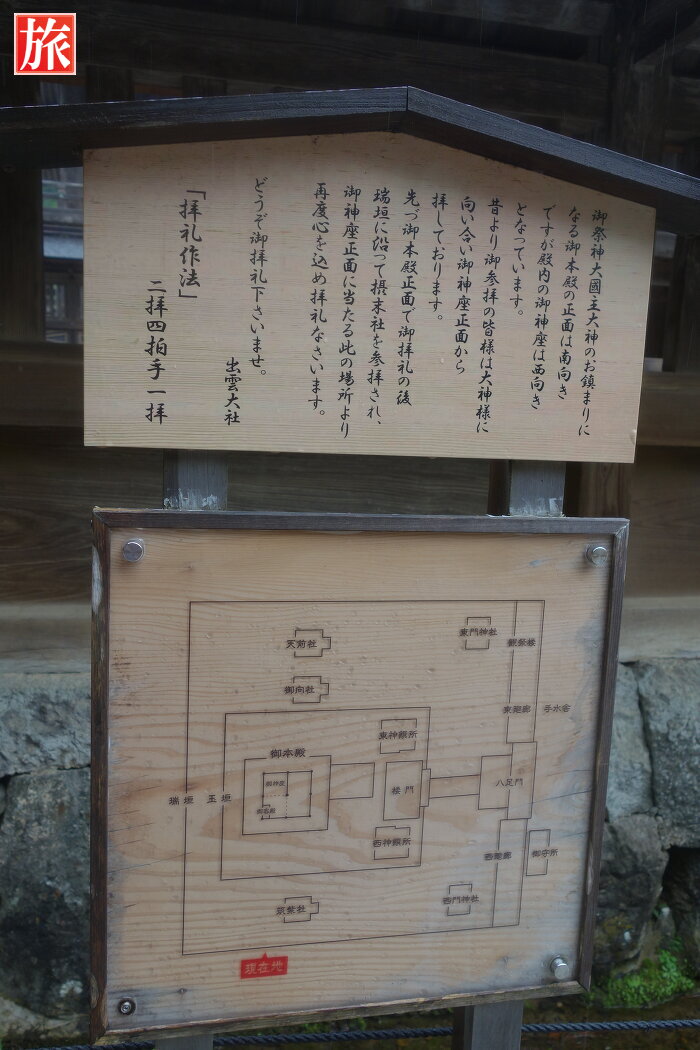 旅
御祭神大國主大神のお鎮まりに
なる御本殿の正面は南向き
ですが殿内の御神座は西向き
となっています。
昔より御参拝の皆様は大神様に
向い合い御神座正面から
拝しております。
先づ御本殿正面で御拝礼の後
瑞垣に沿って摂末社を参拝され、
御神座正面に当たる此の場所より
再度心を込め拝礼なさいます。
どうぞ御拝礼下さいませ。
出雲大社
「拝礼作法」
二拝四拍手一拝
天前社
東門神社
観祭楼
御向社
東廻廊
手水舎
東神饌所
御本殿
御神座
御客殿
瑞垣
玉垣
楼門
八足門
西神饌所
西廻廊
御守所
筑紫社
西門神社
現在地